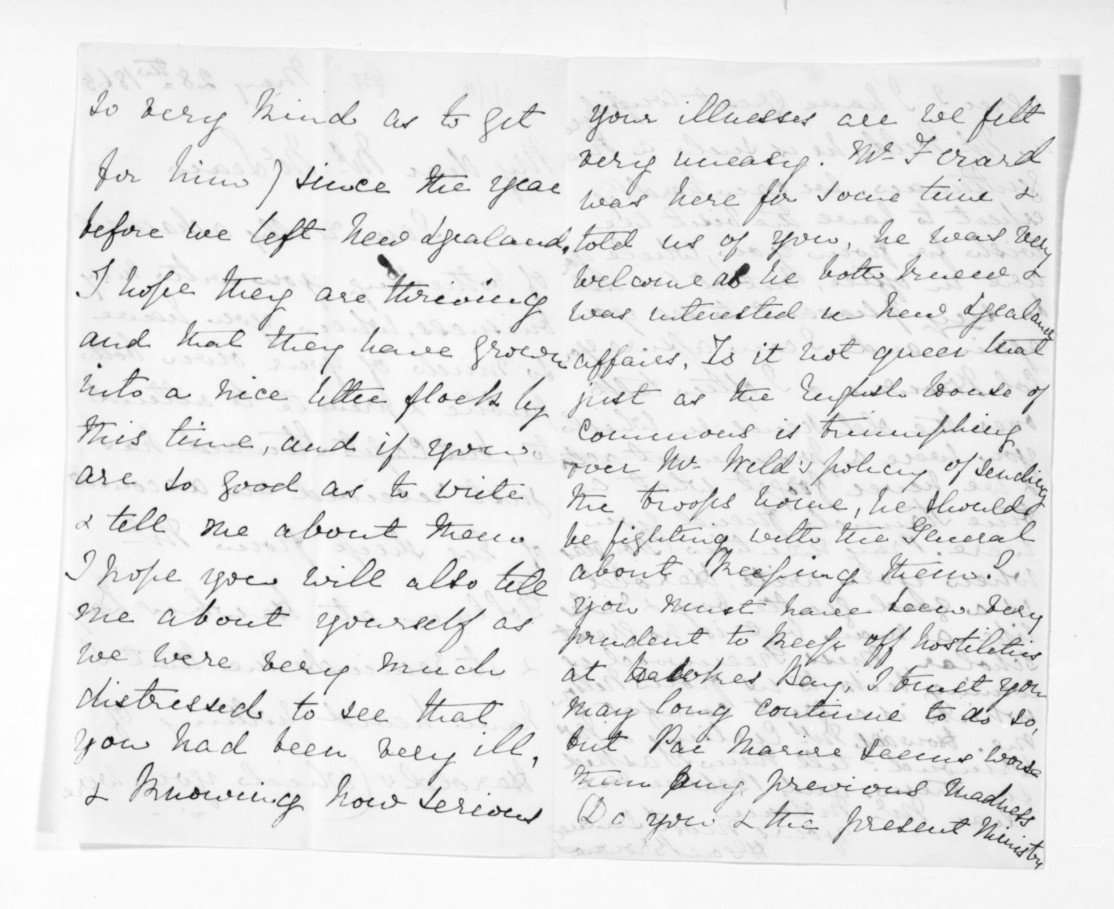 so very kind as to get
for him) since the year
before we left New Zealand.
I hope they are thriving
and that they have grown
into a nice little flock by
this time, and if you
are so good as to write
& tell me about them
I hope you will also tell
me about yourself as
we were very much
distressed to see that
you had been very ill,
& knowing how serious
your illnesses are we felt
very uneasy. Mr Ferard
was here for some time &
told us of you, he was very
welcome as he both knew &
was interested in New Zealand
affairs. Is it not queer that
just as the English House of
Commons is triumphing
over Mr Weld's policy of sending
the troops home, he should
be fighting with the General
about keeping them?
you must have been very
prudent to keep off hostilities
at Hawkes Bay, I trust you
may long continue to do so,
but Pai Marire seems worse
than any previous madness
Do you & the present Ministry